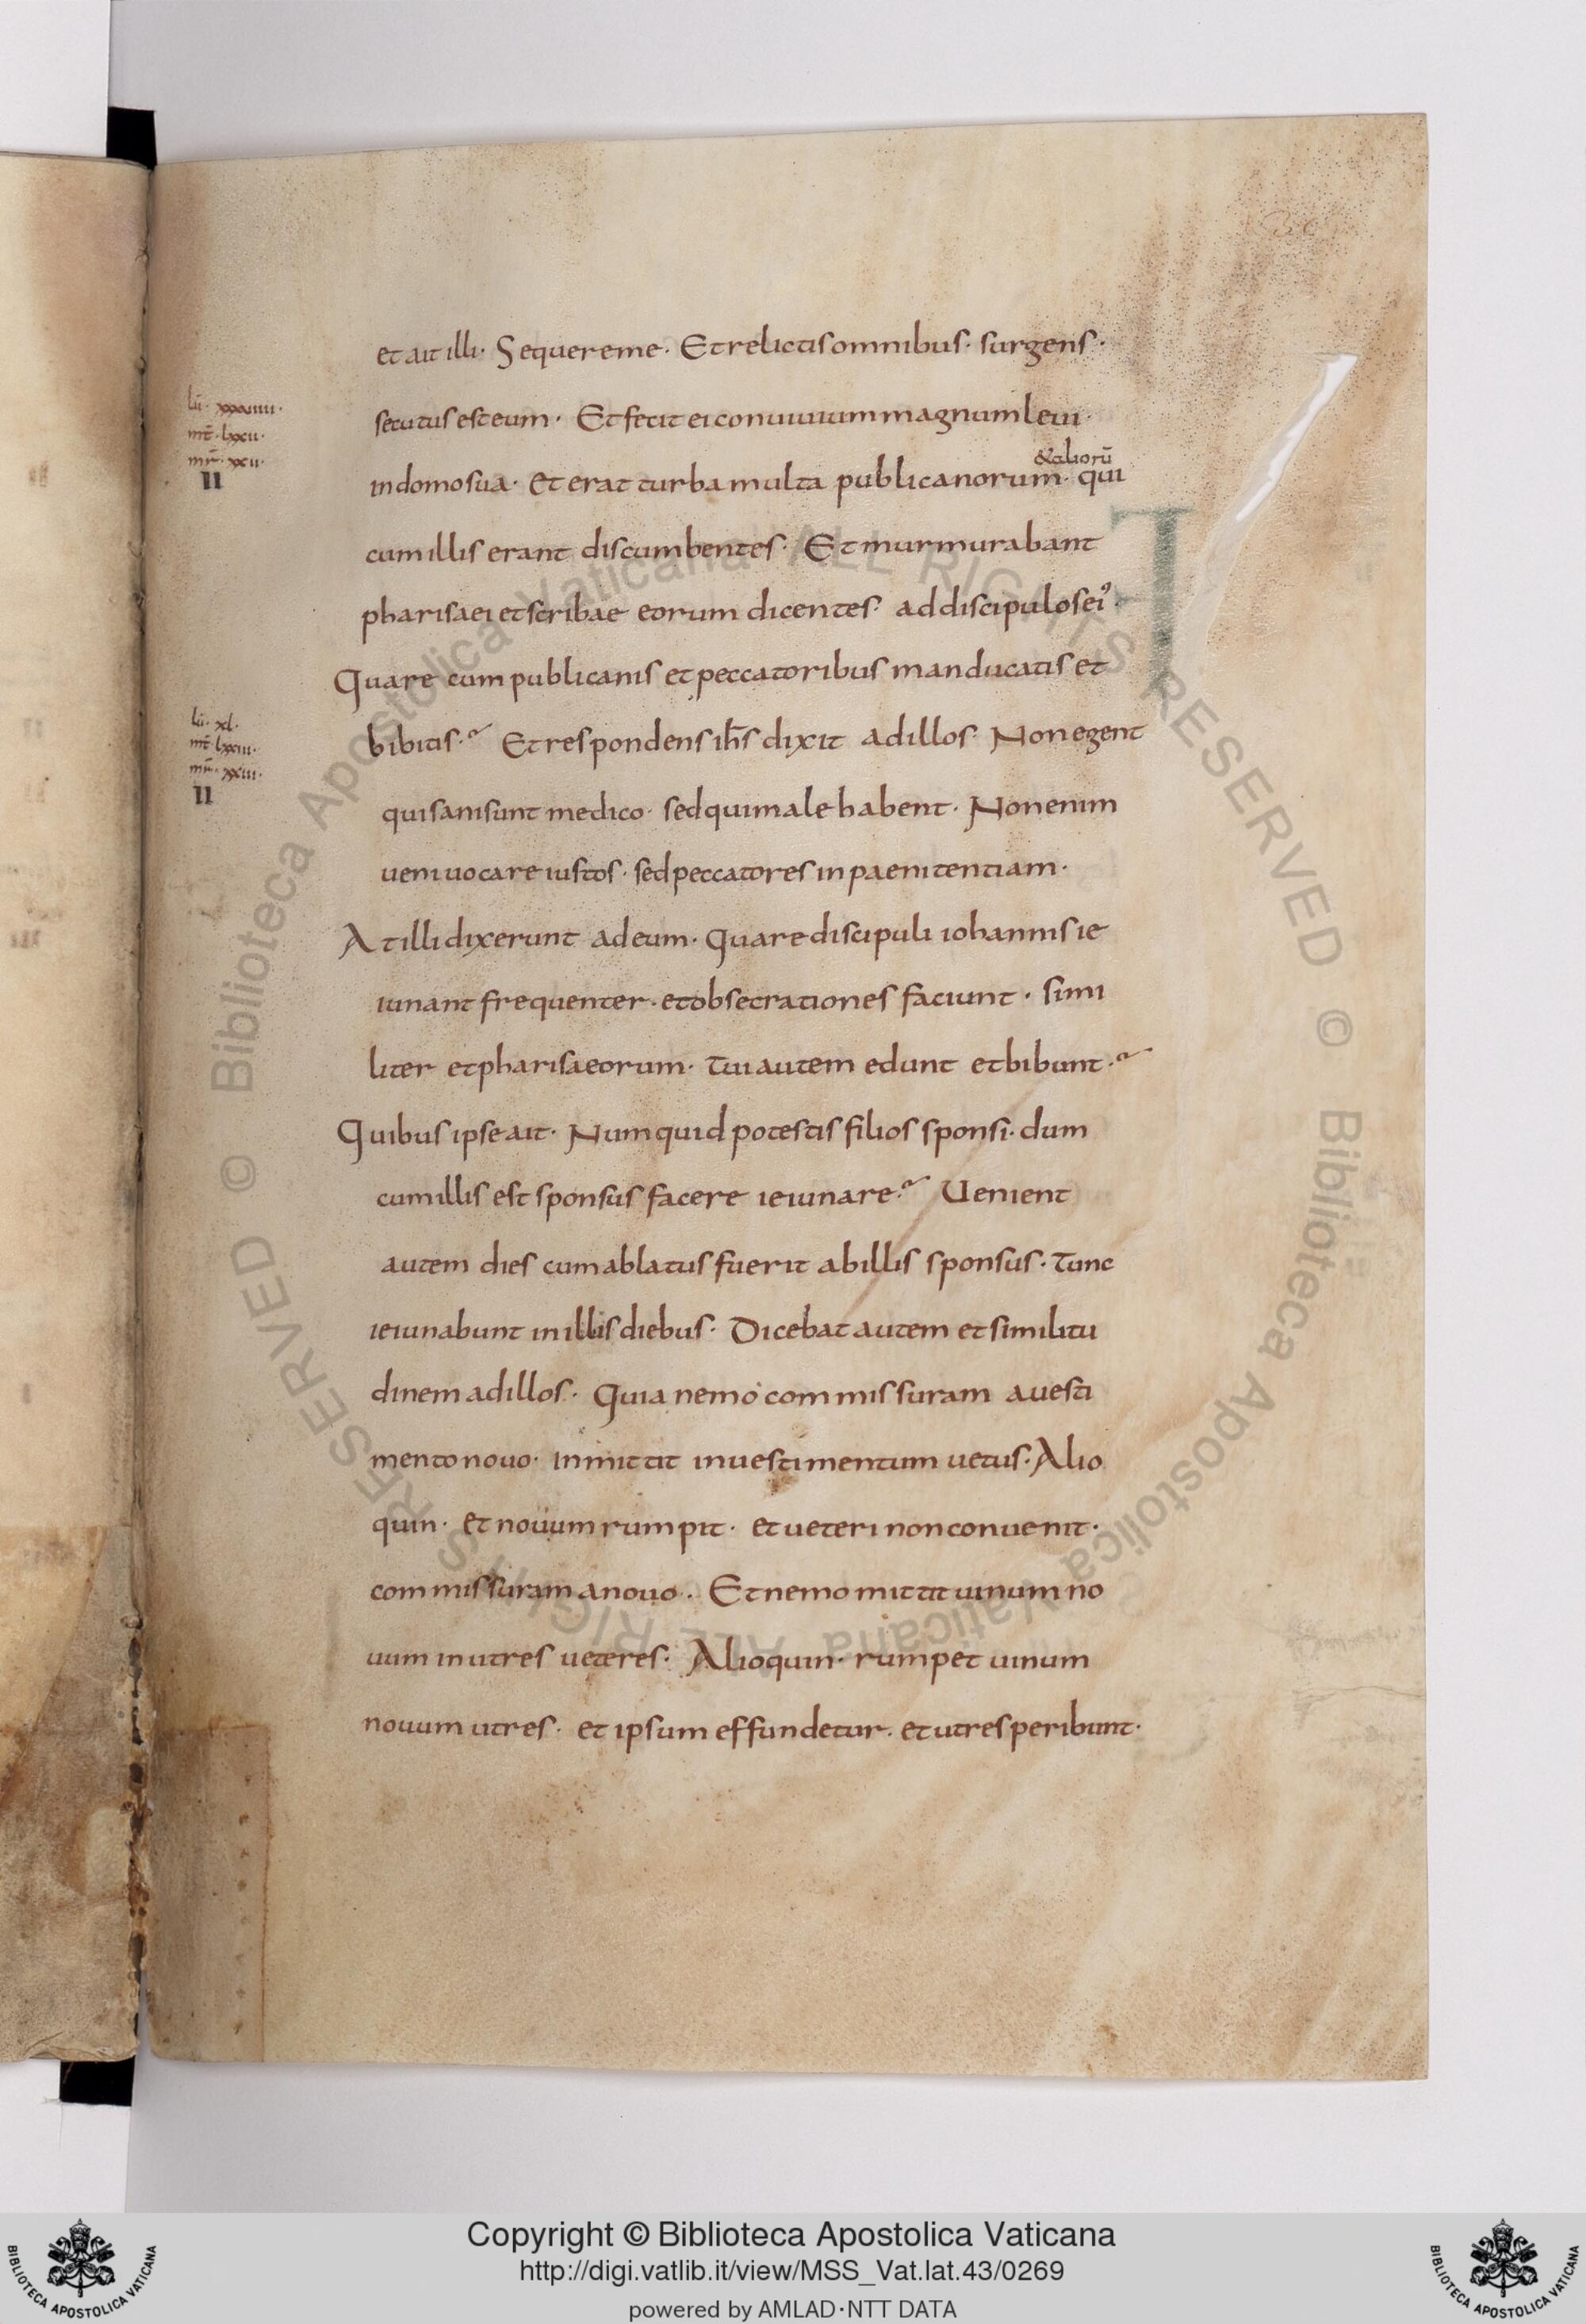 et ait illi· Sequere me· Et relictis omnibus· surgens·
lū· xxxuiiii·
secutus est eum· Et fecit ei conuiuium magnum leui·
mt̄· lxxii·
mr̄· xxii·
II
&aliorū
in domo sua· et erat turba multa publicanorum· qui
cum illis erant discumbentes· Et murmurabant
pharisaei et scribae eorum dicentes· ad discipulos ei᾿·
Quare cum publicanis et peccatoribus manducatis et
lū· xl·
mt̄· lxxiii·
mr̄· xxiii·
II
bibitis? Et respondens ih̄s dixit ad illos· Non egent
qui sani sunt medico· sed qui male habent· Non enim
ueni uocare iustos· sed peccatores in paenitentiam·
At illi dixerunt ad eum· Quare discipuli iohannis ie
iunant frequenter· et obsecrationes faciunt· simi
liter et pharisaeorum· Tui autem edunt et bibunt?
Quibus ipse ait· Numquid potestis filios sponsi· dum
cum illis est sponsus facere ieiunare? Uenient
autem dies cum ablatus fuerit ab illis sponsus· Tunc
ieiunabunt in illis diebus· Dicebat autem et similitu
dinem ad illos· Quia nemo commissuram a uesti
mento nouo· inmittit in uestimentum uetus· Alio
quin· et nouum rumpit· et ueteri non conuenit·
commissuram a nouo· Et nemo mittit uinum no
uum in utres ueteres· Alioquin· rumpet uinum
nouum utres· et ipsum effundetur· et utres peribunt·
© Biblioteca Apostolica Vaticana ALL RIGHTS RESERVED
© Biblioteca Apostolica Vaticana ALL RIGHTS RESERVED
Copyright © Biblioteca Apostolica Vaticana
http://digi.vatlib.it/view/MSS_Vat.lat.43/0269
powered by AMLAD·NTT DATA
BIBLIOTECA APOSTOLICA VATICANA
BIBLIOTECA APOSTOLICA VATICANA